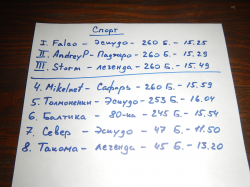 Спорт
I. Falco - Эскудо - 260 Б. - 15.25
II. AndreyP - Паджеро - 260 Б. - 15.29
III. Storm - легенда - 260 Б. - 15.49
4. Mikelnet - Сафарь - 260 Б. - 15.59
5. Толмоненин - Эскудо - 253 Б. - 16.04
6. Балтика - 80-ка - 245 Б. - 15.54
7. Север - Эскудо - 47 Б. - 11.50
8. Такома - легенда - 45 Б. - 13.20